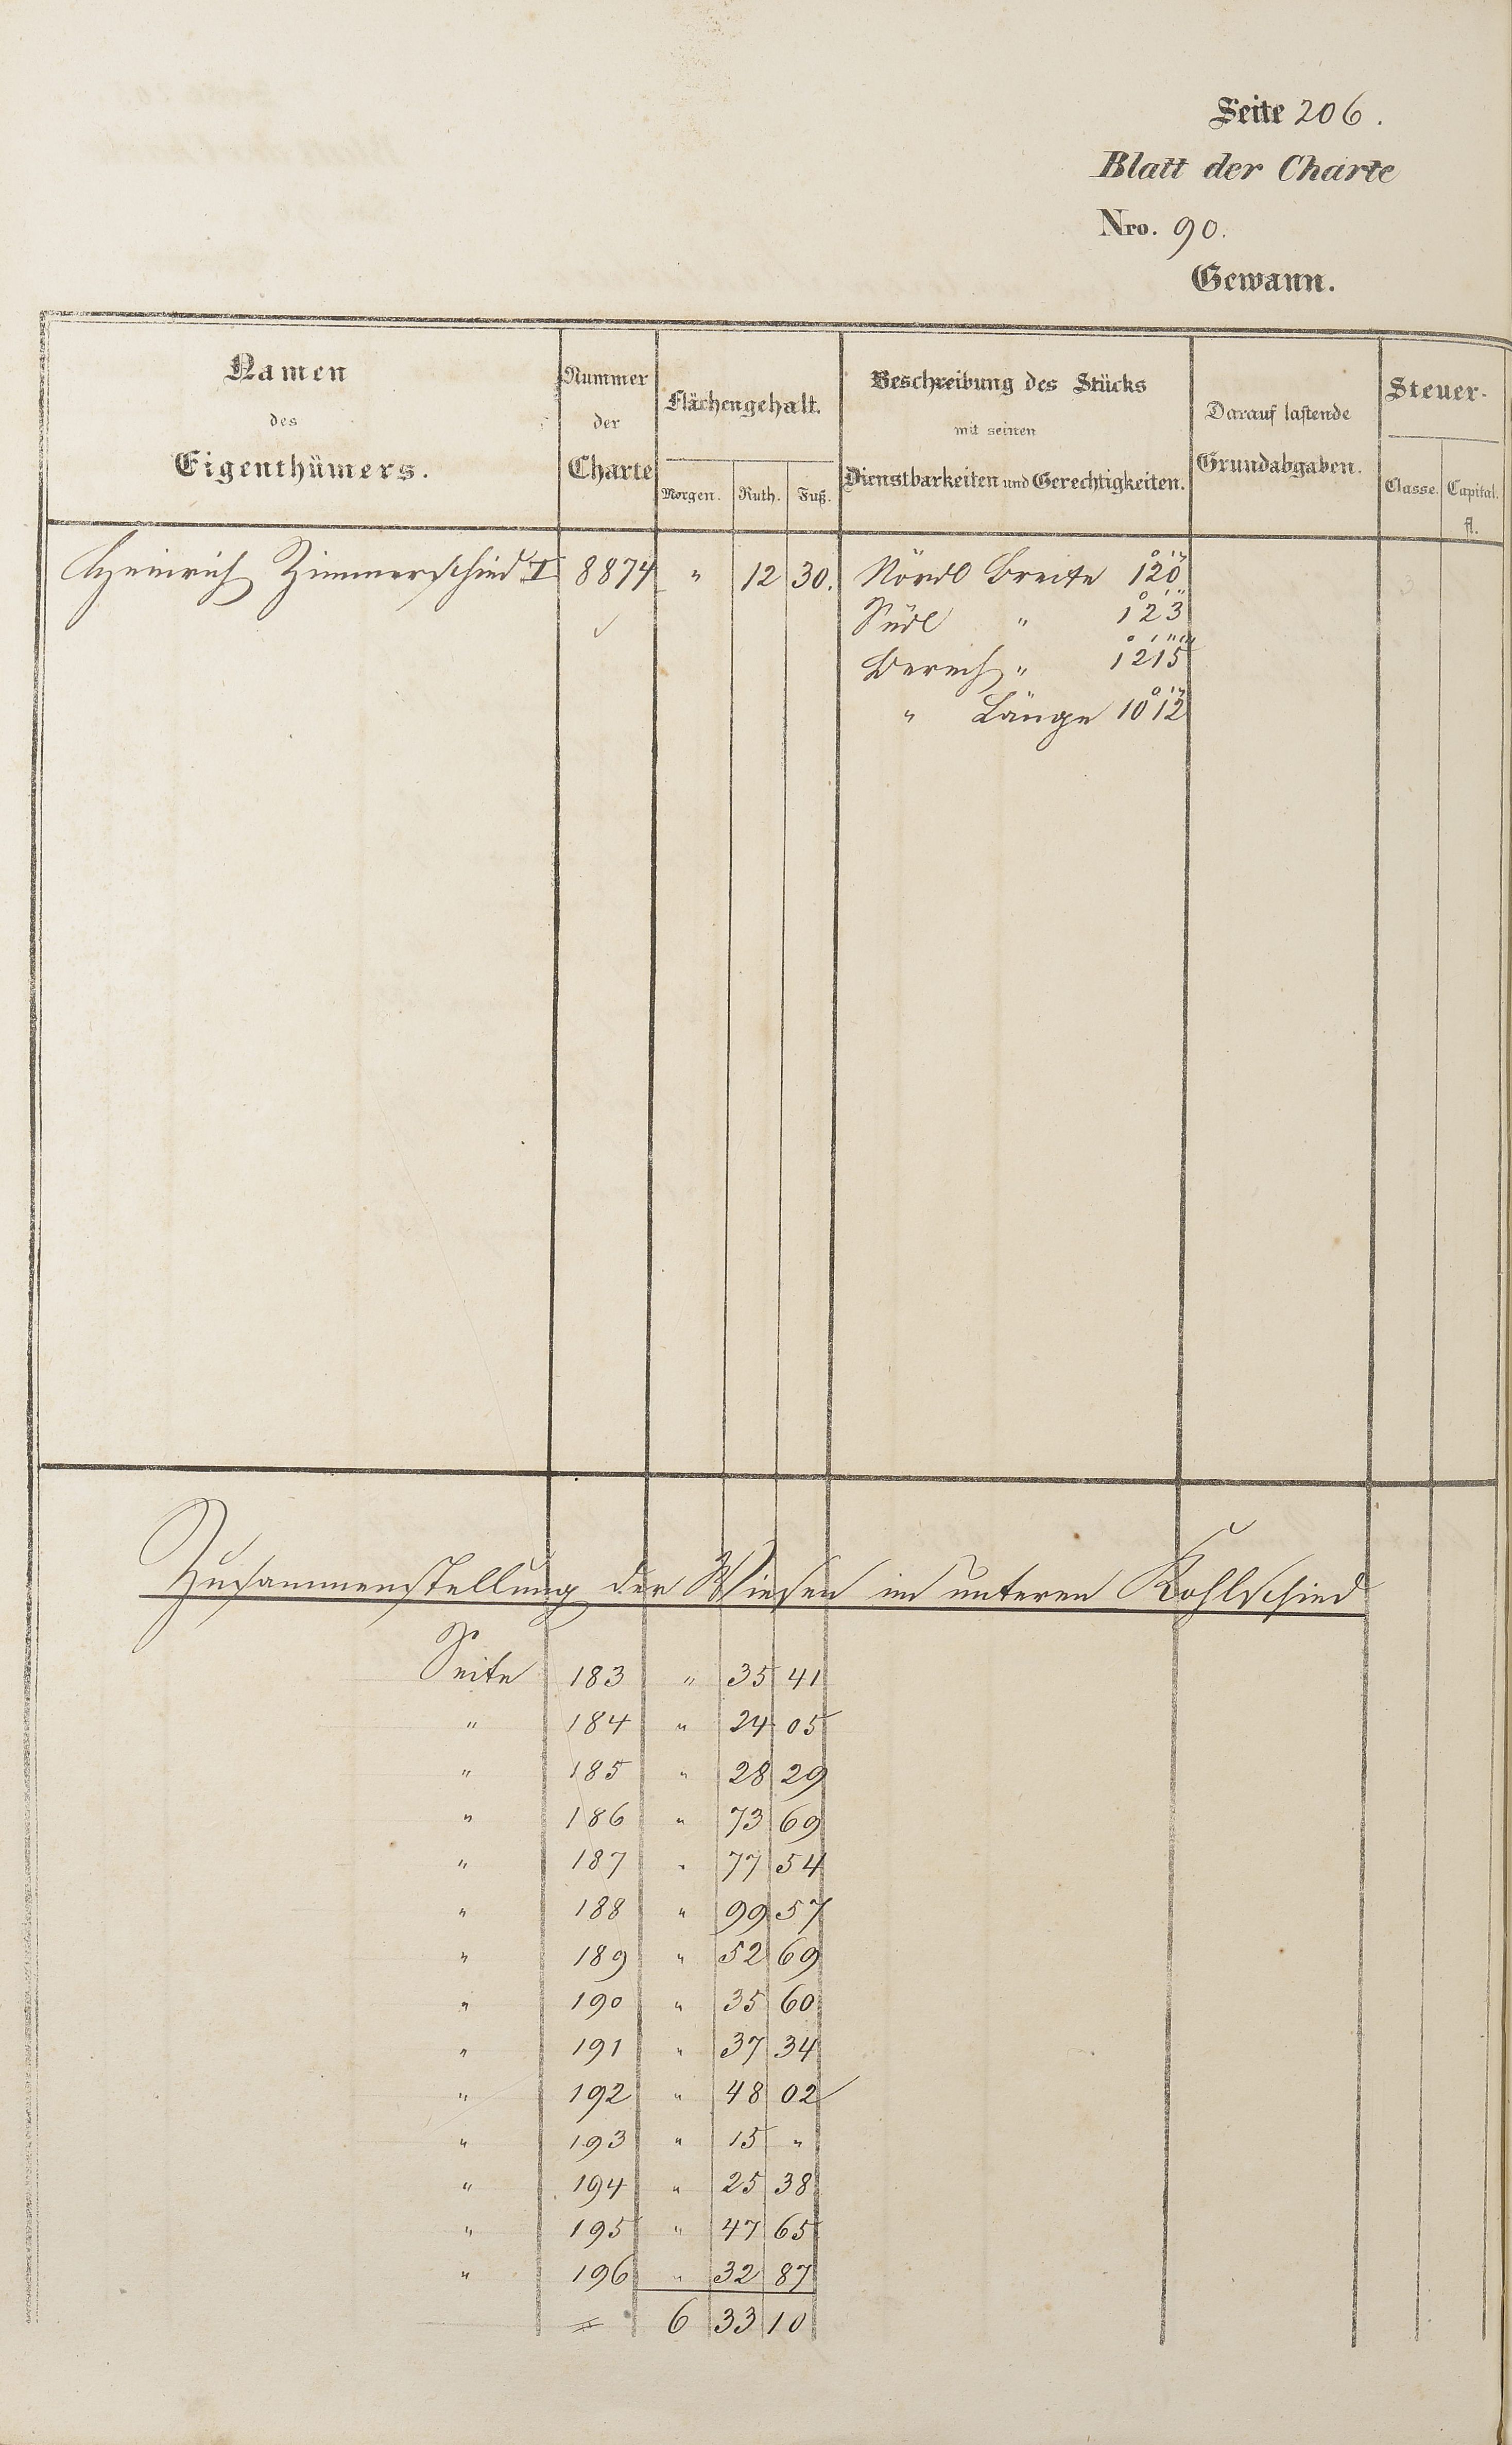 Seite 206.
Blatt der Charte
Nro. 90.
Gewann.
Namen des Eigenthümers.
Nummer der Charte
Flächengehalt.
Morgen. Ruth. Fuß.
Beschreibung des Stücks mit seinen Dienstbarkeiten und Gerechtigkeiten.
Darauf lastende Grundabgaben.
Steuer-
Classe. Capital. fl.
Heinrich Zimmerschied I 8874 " 12 30. Nördl Breite 1° 2' 0"
Südl " 1° 2' 3"
Berech " 1° 2' 1" 5'''
" Länge 10° 1' 2"
Zusammenstellung der Wiesen im unteren Kohlschied
Seite 183 " 35 41
" 184 " 24 05
" 185 " 28 29
" 186 " 73 69
" 187 " 77 54
" 188 " 99 57
" 189 " 52 69
" 190 " 35 60
" 191 " 37 34
" 192 " 48 02
" 193 " 15 "
" 194 " 25 38
" 195 " 47 65
" 196 " 32 87
6 33 10